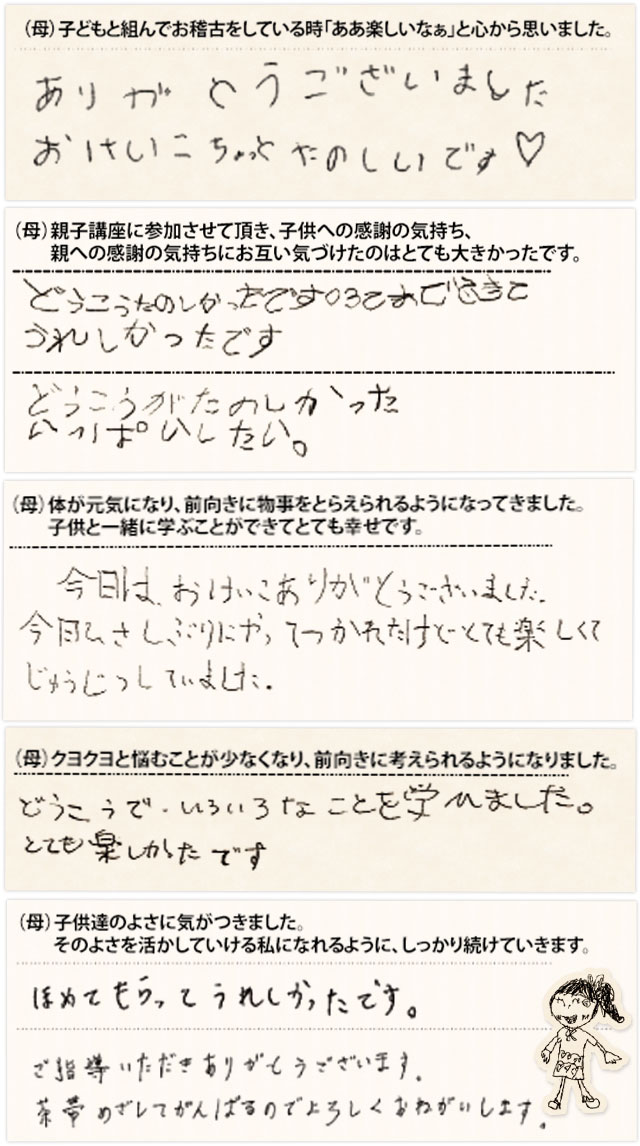 （母）子どもと組んでお稽古をしている時｢ああ楽しいなぁ｣と心から思いました。
ありがとうございました
おけいこちょっとたのしいです♡
（母）親子講座に参加させて頂き、子供への感謝の気持ち、
親への感謝の気持ちにお互い気づけたのはとても大きかったです。
どうこうたのしかったです
うれしかったです
どうこうがたのしかった
いっぱいしたい。
（母）体が元気になり、前向きに物事をとらえられるようになってきました。
子供と一緒に学ぶことができてとても幸せです。
今日は、おけいこありがとうございました。
今日ひさしぶりにやってつかれたけどとても楽しくて
じゅうじつしていました。
（母）クヨクヨと悩むことが少なくなり、前向きに考えられるようになりました。
どうこうで、いろいろなことを学べました。
とても楽しかったです
（母）子供達のよさに気がつきました。
そのよさを活かしていける私になれるように、しっかり続けていきます。
ほめてもらってうれしかったです。
ご指導いただきありがとうございます。
茶帯めざしてがんばるのでよろしくおねがいします。